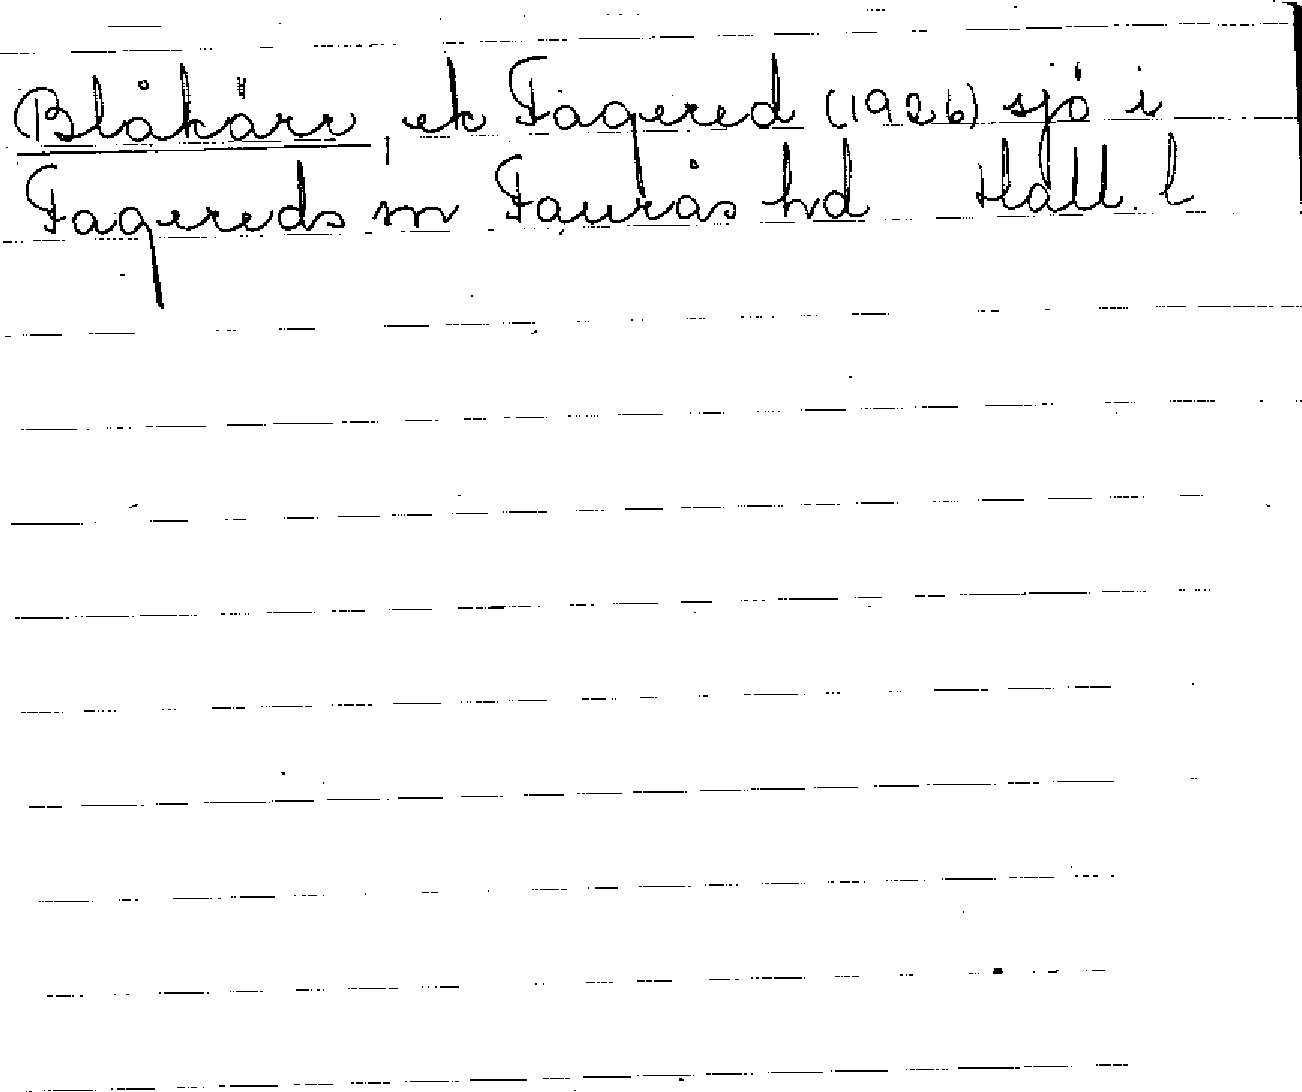 Blåkärr, ek Fagered (1926) sjö i
Fagereds sn Faurås hd Hall. l